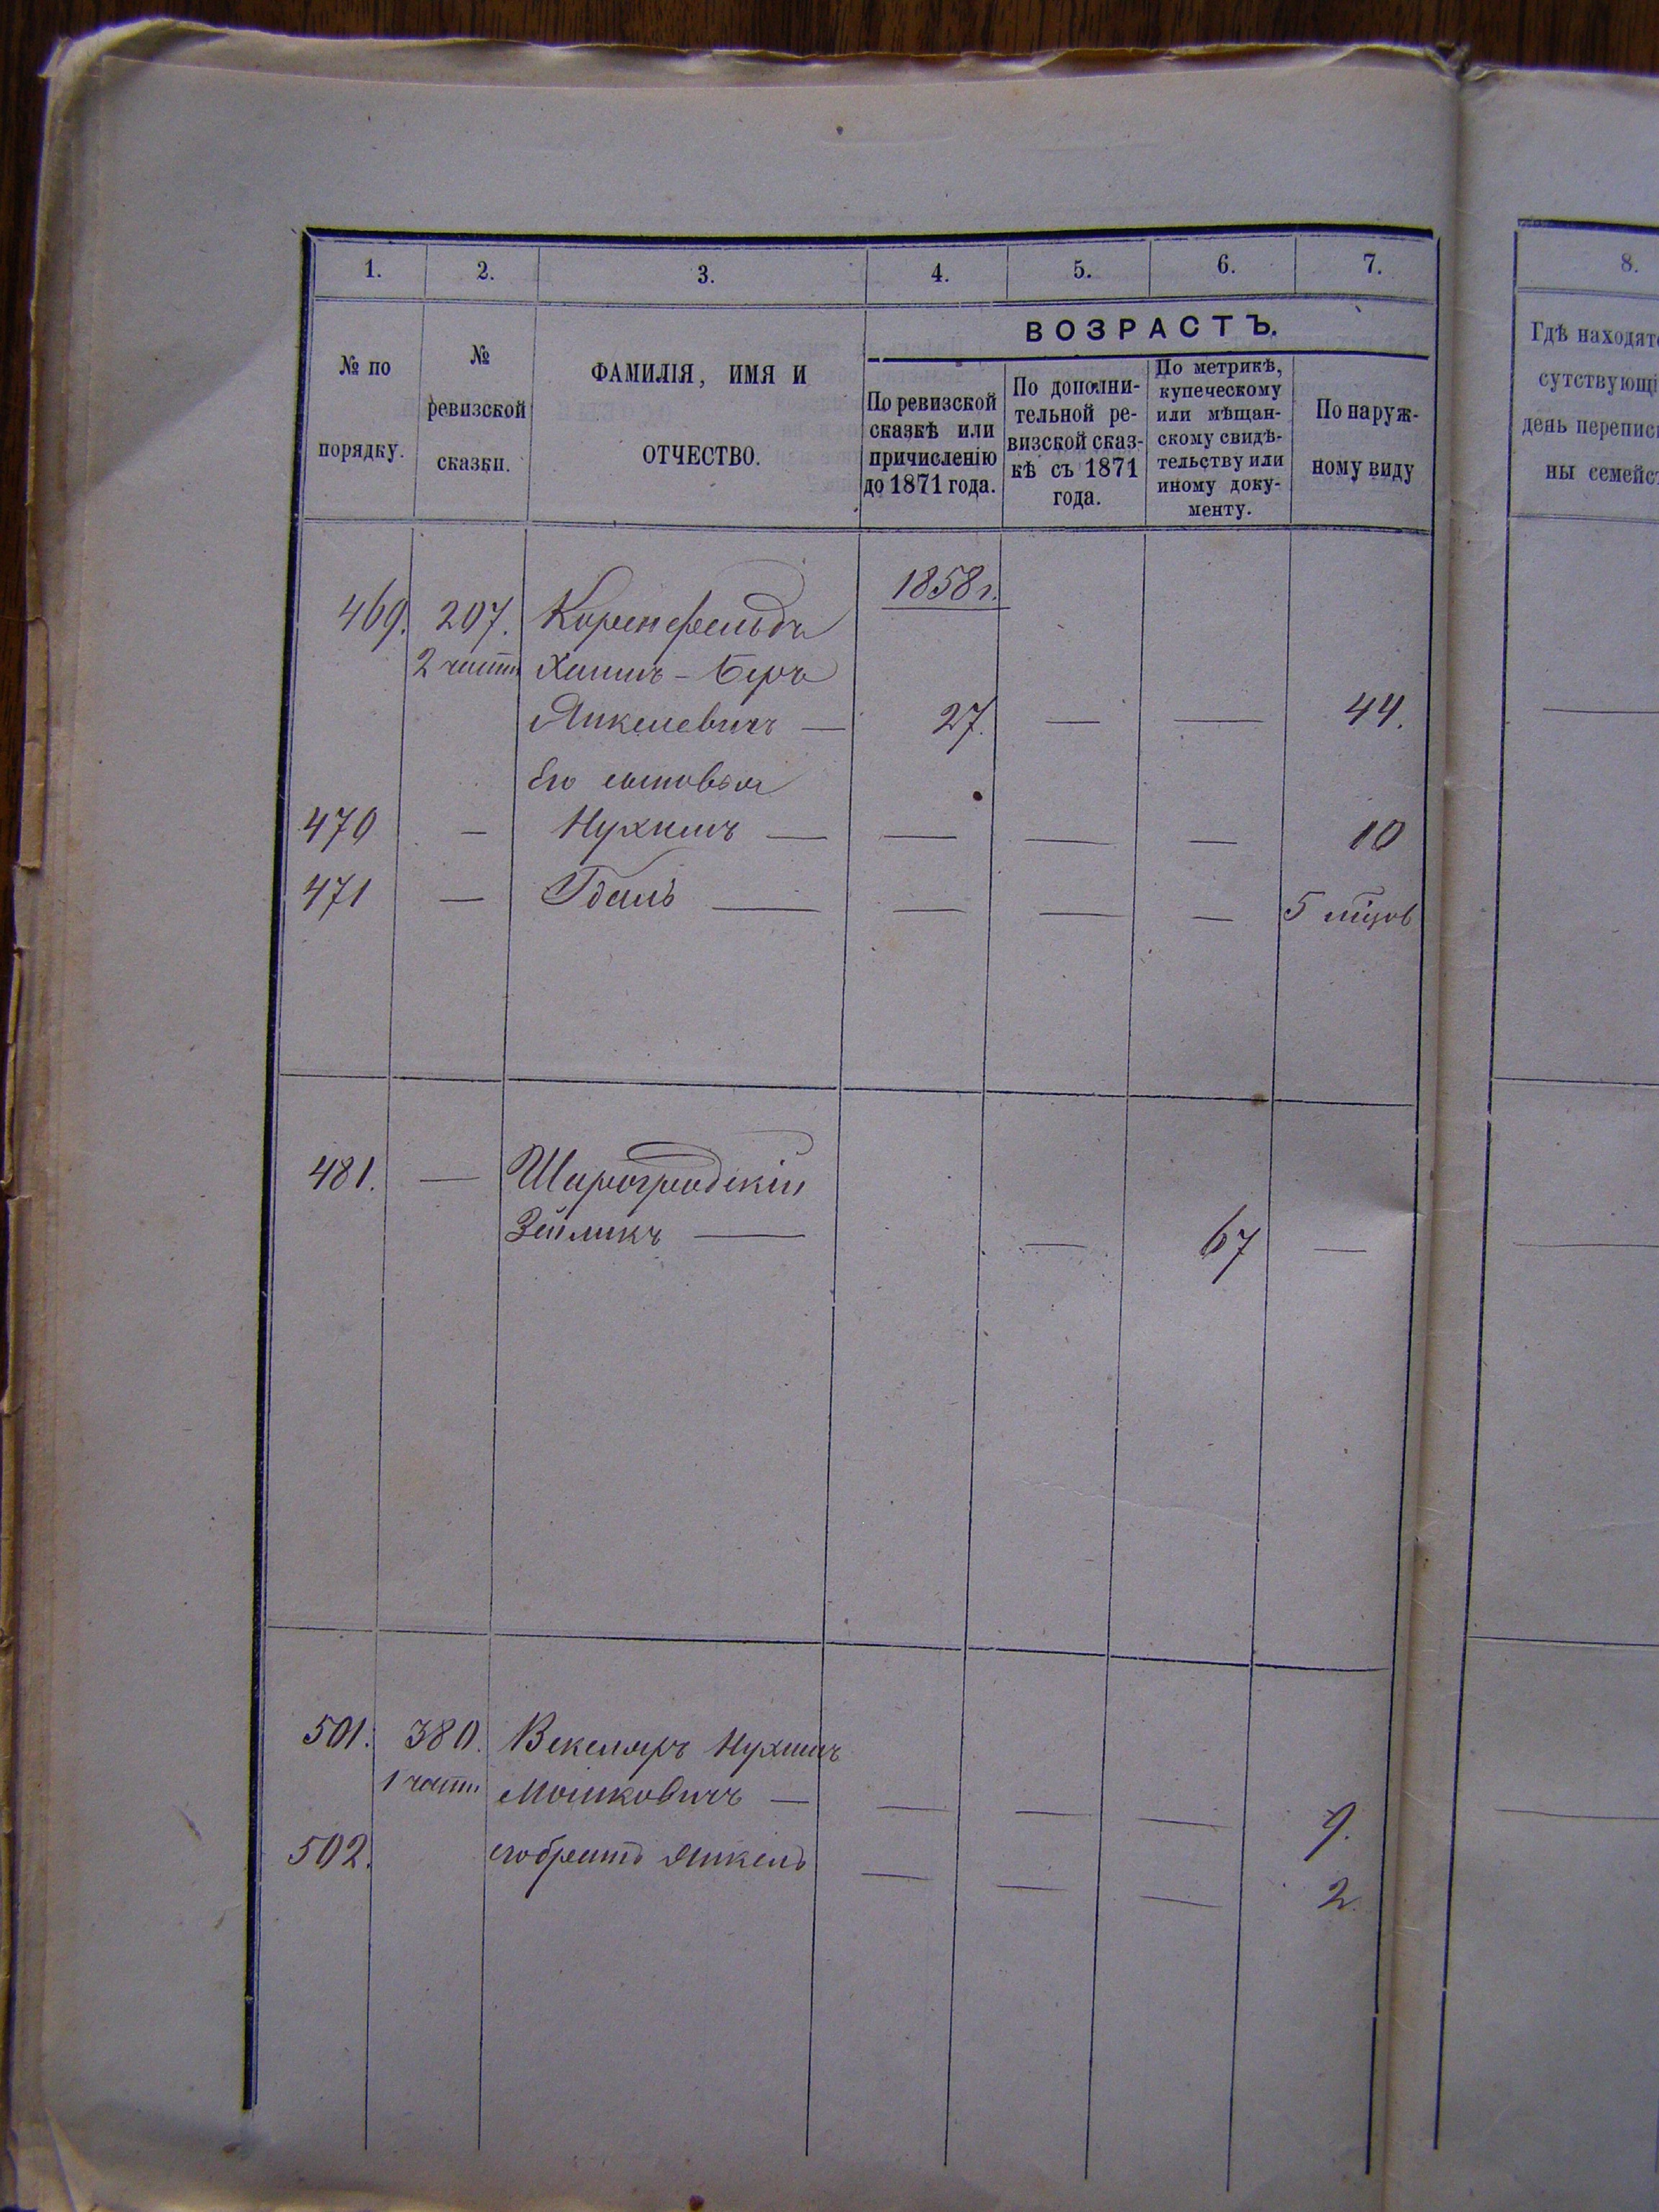 1. 2. 3. 4. 5. 6. 7. 8.
ВОЗРАСТЪ.
№ по
порядку.
№
ревизской
сказки.
ФАМИЛІЯ, ИМЯ И
ОТЧЕСТВО.
По ревизской
сказкѣ или
причисленію
до 1871 года.
По дополни-
тельной ре-
визской сказ-
кѣ съ 1871
года.
По метрикѣ,
купеческому
или мѣщан-
скому свидѣ-
тельству или
иному доку-
менту.
По наруж-
ному виду
Гдѣ находят
сутствующі
день перепис
ны семейс
1858 г.
469. 207. Коренфельдъ
2 части Хаимъ-Беръ
Янкелевичъ — 27. — — 44.
Его сыновья
470 — Нухимъ — — — — 10
471 — Гдаль — — — — 5 мѣсяцов
481. — Шарогродскій
Зейликъ — — 67 —
501. 380. Векслеръ Нухимъ
1 части Мошковичъ — — — — 9.
502. его братъ Янкель — — — 2.